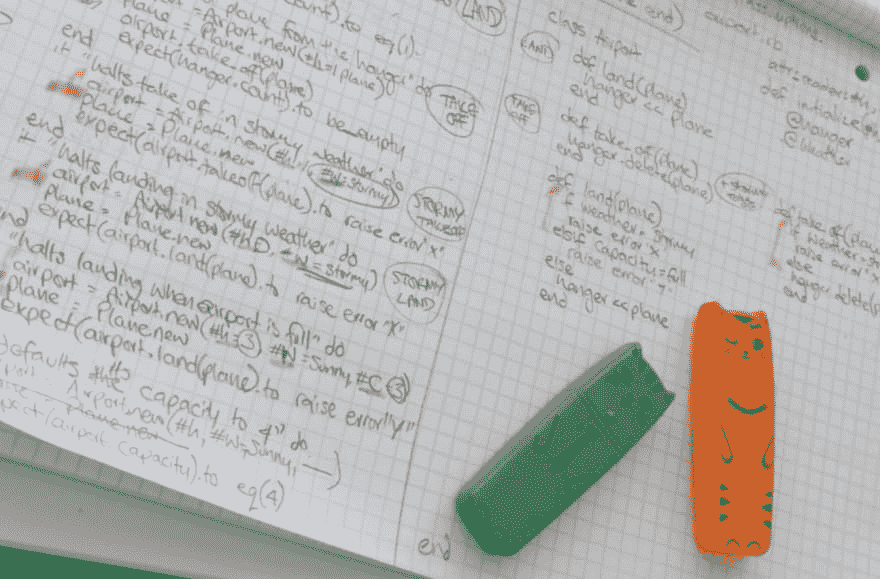 count).to eq(1).
plane from the hangar" do
plane = Airport.new(#h=1plane)
airport = Plane.new
airport.take_of(plane)
expect(hangar.count).to be_empty
end
it "halts take of in stormy weather" do
airport = Airport.new(#h=, #w=stormy)
plane = Plane.new
expect(airport.takeoff(plane).to raise error "x"
end
it "halts landing in stormy weather" do
airport = Airport new(#h0, #w=stormy)
plane = Plane.new
expect(airport.land(plane).to raise error "x"
end
"halts landing when airport is full" do
airport = Airport.new(#h=3) #w=sunny, #C(3)
plane = Plane.new
expect(airport.land(plane).to raise error "y"
defaults the capacity to 4" do
Airport.new(#h, #w=sunny, —)
plane.new
expect(airport capacity).to eq(4)
LAND
TAKE OFF
STORMY TAKEOFF
STORMY LAND
end)
class Airport
LAND
def land(plane)
hanger << plane
end
TAKE OFF
def take_of(plane)
hanger.delete(plane)
end
+ STORMY
def land(plane)
if weather = stormy
raise error "x"
elsif capacity = full
raise error "y"
else
hanger << plane
end
end
airport.rb
attr_reader
def initialize
@hangar
@weather
def take_of(plane
if weather = sto
raise error "x
else
hanger.delete(p
end